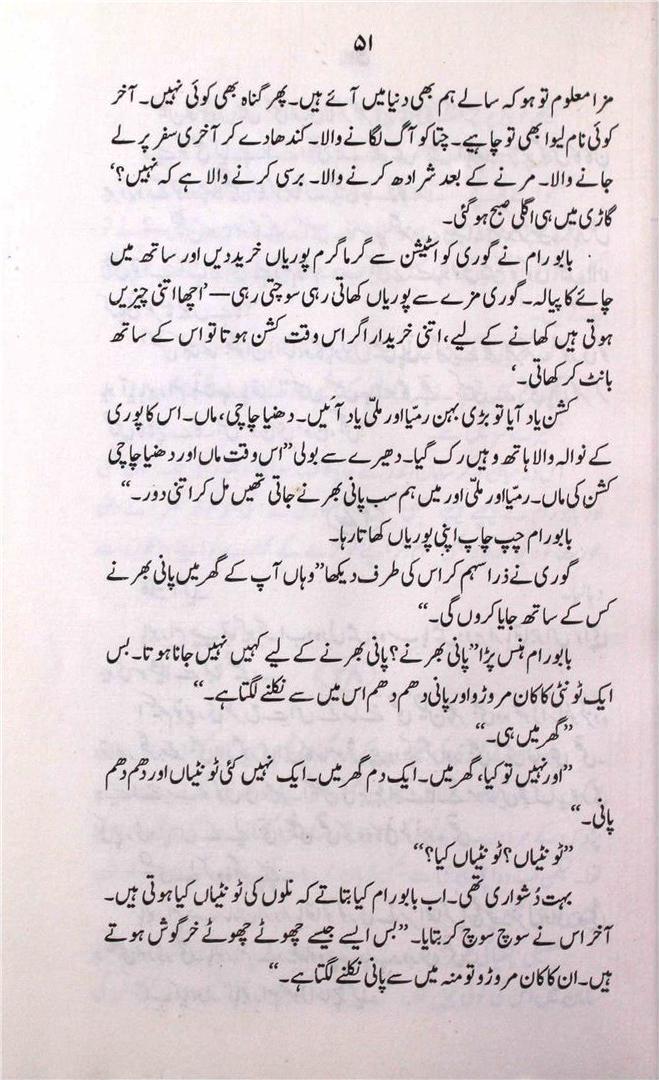 ۵۱
مزا معلوم تو ہو کہ سالے ہم بھی دنیا میں آئے ہیں۔ پھر گناہ بھی کوئی نہیں۔ آخر
کوئی نام لیوا بھی تو چاہیے۔ چتا کو آگ لگانے والا۔ کندھا دے کر آخری سفر پر لے
جانے والا۔ مرنے کے بعد شرادھ کرنے والا۔ برسی کرنے والا ہے کہ نہیں؟‘
گاڑی میں ہی اگلی صبح ہو گئی۔
بابو رام نے گوری کو اسٹیشن سے گرما گرم پوریاں خرید دیں اور ساتھ میں
چائے کا پیالہ۔ گوری مزے سے پوریاں کھاتی رہی سوچتی رہی — ’اچھا اتنی چیزیں
ہوتی ہیں کھانے کے لیے، اتنی خریدار اگر اس وقت کشن ہوتا تو اس کے ساتھ
بانٹ کر کھاتی۔‘
کشن یاد آیا تو بڑی بہن رمیّا اور ملّی یاد آئیں۔ دھنیا چاچی، ماں۔ اس کا پوری
کے نوالہ والا ہاتھ وہیں رک گیا۔ دھیرے سے بولی ”اس وقت ماں اور دھنیا چاچی
کشن کی ماں۔ رمیّا اور ملّی اور میں ہم سب پانی بھرنے جاتی تھیں مل کر اتنی دور۔“
بابو رام چپ چاپ اپنی پوریاں کھاتا رہا۔
گوری نے ذرا سہم کر اس کی طرف دیکھا ”وہاں آپ کے گھر میں پانی بھرنے
کس کے ساتھ جایا کروں گی۔“
بابو رام ہنس پڑا ”پانی بھرنے؟ پانی بھرنے کے لیے کہیں نہیں جانا ہوتا۔ بس
ایک ٹونٹی کا کان مروڑو اور پانی دھم دھم اس میں سے نکلنے لگتا ہے۔“
”گھر میں ہی۔“
”اور نہیں تو کیا، گھر میں۔ ایک دم گھر میں۔ ایک نہیں کئی ٹونٹیاں اور دھم دھم
پانی۔“
”ٹونٹیاں؟ ٹونٹیاں کیا؟“
بہت دُشواری تھی۔ اب بابو رام کیا بتاتے کہ نلوں کی ٹونٹیاں کیا ہوتی ہیں۔
آخر اس نے سوچ سوچ کر بتایا۔ ”بس ایسے جیسے چھوٹے چھوٹے خرگوش ہوتے
ہیں۔ ان کا کان مروڑو تو منہ میں سے پانی نکلنے لگتا ہے۔“